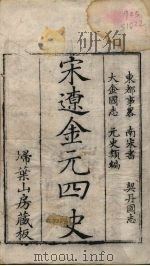 東都事畧 南宋書 契丹國志
大金國志 元史類編
宋遼金元四史
埽葉山房藏板